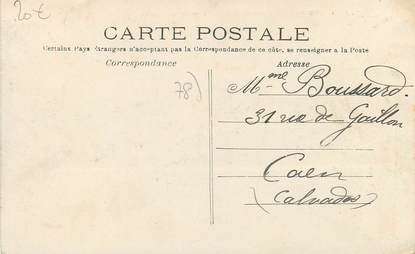 20€
CARTE POSTALE
Certains Pays Étrangers n'acceptant pas la Correspondance de ce côté, se renseigner à la Poste
Correspondance
Adresse
78)
Mme Boussard.
31 rue de Gaillon
Caen
(Calvados)